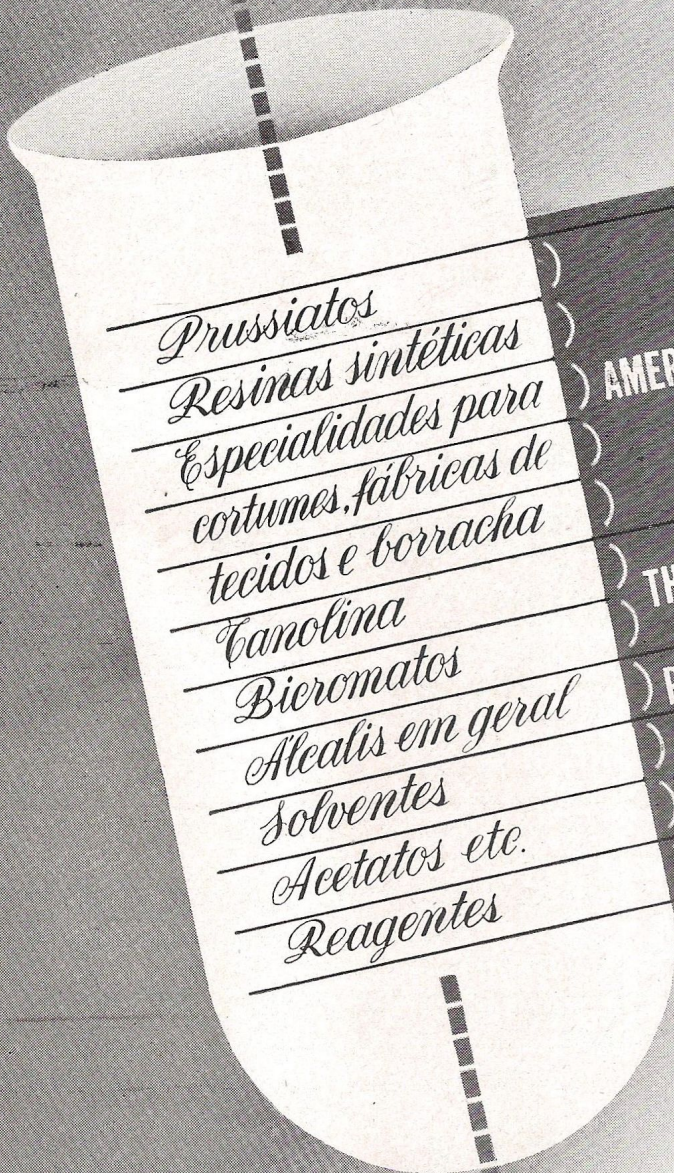 Prussiatos
Resinas sintéticas
Especialidades para
cortumes, fábricas de
tecidos e borracha
Tanolina
Bicromatos
Álcalis em geral
Solventes
Acetatos etc.
Reagentes
AMER
TH